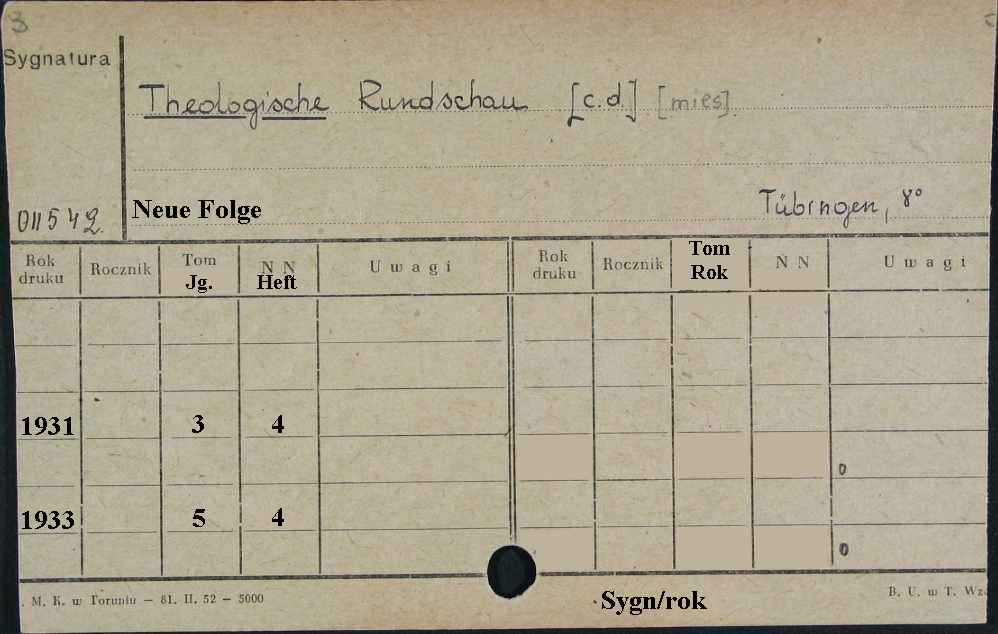 3
Sygnatura
Theologische Rundschau [c.d.] [mies].
011542
Neue Folge
Tübingen, 8°
Rok druku Rocznik Tom Jg. N N Heft Uwagi Rok druku Rocznik Tom Rok N N Uwagi
1931 3 4
o
1933 5 4
o
. M. K. w Toruniu — 81. II. 52 — 5000
Sygn/rok
B. U. w T. Wz